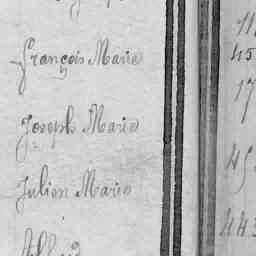 François Marie
45
17
Joseph Marie
Julien Marie
45
443